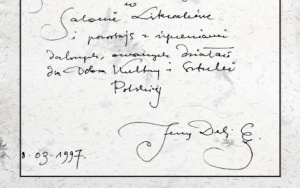 w
Salonie Literackim
i pozostaję z życzeniami
dalszych, owocnych działań
dla Dobra Kultury i Sztuki
Polskiej
Jerzy
8.03.1997.